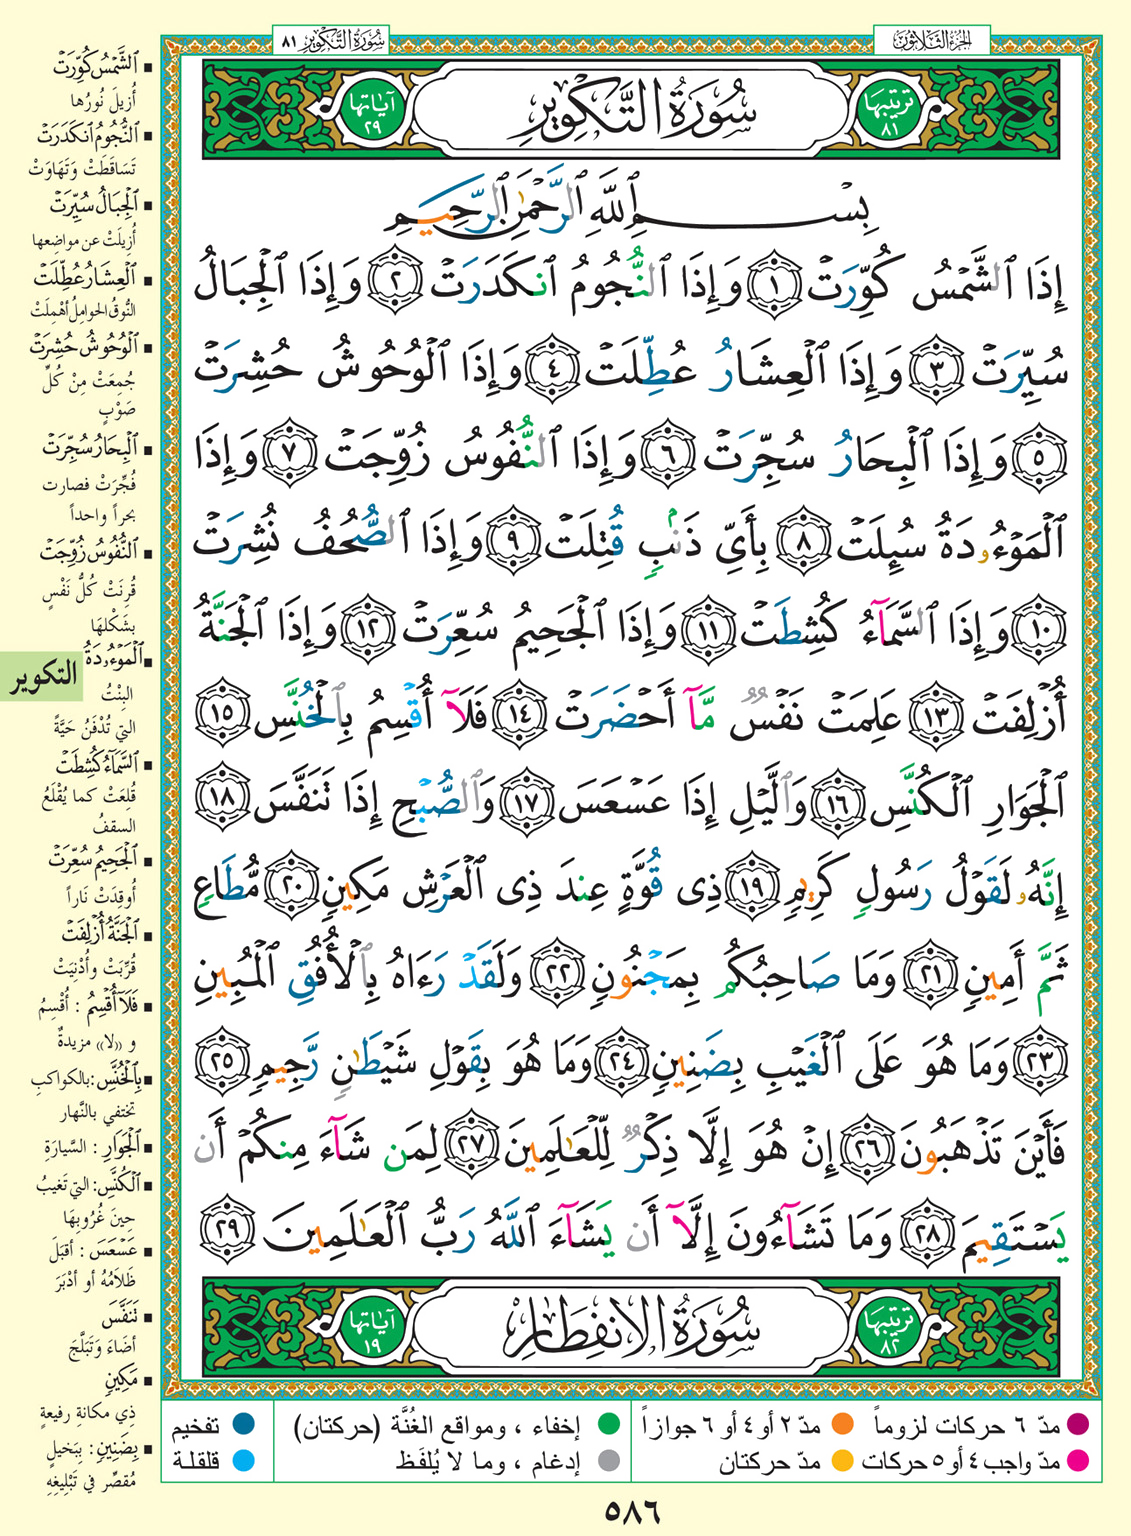 الجزء الثلاثون
سورة التكوير ٨١
ترتيبها ٨١
سُورَةُ التَّكْوِيرِ
آياتها ٢٩
بِسْمِ ٱللَّهِ ٱلرَّحْمَٰنِ ٱلرَّحِيمِ
إِذَا ٱلشَّمْسُ كُوِّرَتْ ١ وَإِذَا ٱلنُّجُومُ ٱنكَدَرَتْ ٢ وَإِذَا ٱلْجِبَالُ
سُيِّرَتْ ٣ وَإِذَا ٱلْعِشَارُ عُطِّلَتْ ٤ وَإِذَا ٱلْوُحُوشُ حُشِرَتْ
٥ وَإِذَا ٱلْبِحَارُ سُجِّرَتْ ٦ وَإِذَا ٱلنُّفُوسُ زُوِّجَتْ ٧ وَإِذَا
ٱلْمَوْءُۥدَةُ سُئِلَتْ ٨ بِأَيِّ ذَنۢبٍ قُتِلَتْ ٩ وَإِذَا ٱلصُّحُفُ نُشِرَتْ
١٠ وَإِذَا ٱلسَّمَآءُ كُشِطَتْ ١١ وَإِذَا ٱلْجَحِيمُ سُعِّرَتْ ١٢ وَإِذَا ٱلْجَنَّةُ
أُزْلِفَتْ ١٣ عَلِمَتْ نَفْسٌ مَّآ أَحْضَرَتْ ١٤ فَلَآ أُقْسِمُ بِٱلْخُنَّسِ ١٥
ٱلْجَوَارِ ٱلْكُنَّسِ ١٦ وَٱلَّيْلِ إِذَا عَسْعَسَ ١٧ وَٱلصُّبْحِ إِذَا تَنَفَّسَ ١٨
إِنَّهُۥ لَقَوْلُ رَسُولٍ كَرِيمٍ ١٩ ذِى قُوَّةٍ عِندَ ذِى ٱلْعَرْشِ مَكِينٍ ٢٠ مُّطَاعٍ
ثَمَّ أَمِينٍ ٢١ وَمَا صَاحِبُكُم بِمَجْنُونٍ ٢٢ وَلَقَدْ رَءَاهُ بِٱلْأُفُقِ ٱلْمُبِينِ
٢٣ وَمَا هُوَ عَلَى ٱلْغَيْبِ بِضَنِينٍ ٢٤ وَمَا هُوَ بِقَوْلِ شَيْطَٰنٍ رَّجِيمٍ ٢٥
فَأَيْنَ تَذْهَبُونَ ٢٦ إِنْ هُوَ إِلَّا ذِكْرٌ لِّلْعَٰلَمِينَ ٢٧ لِمَن شَآءَ مِنكُمْ أَن
يَسْتَقِيمَ ٢٨ وَمَا تَشَآءُونَ إِلَّآ أَن يَشَآءَ ٱللَّهُ رَبُّ ٱلْعَٰلَمِينَ ٢٩
ترتيبها ٨٢
سُورَةُ الانفِطَارِ
آياتها ١٩
ٱلشَّمْسُ كُوِّرَتْ
أُزيلَ نُورُها
ٱلنُّجُومُ ٱنكَدَرَتْ
تَسَاقَطَتْ وَتَهَاوَتْ
ٱلْجِبَالُ سُيِّرَتْ
أُزِيلَتْ عن مواضِعها
ٱلْعِشَارُ عُطِّلَتْ
النُّوقُ الحوامِلُ أُهْمِلَتْ
ٱلْوُحُوشُ حُشِرَتْ
جُمِعَتْ مِنْ كُلِّ
صَوْبٍ
ٱلْبِحَارُ سُجِّرَتْ
فُجِّرَتْ فصارت
بحراً واحداً
ٱلنُّفُوسُ زُوِّجَتْ
قُرِنَتْ كُلُّ نَفْسٍ
بشَكْلهَا
ٱلْمَوْءُۥدَةُ
البِنْتُ
التي تُدْفَنُ حَيَّةً
ٱلسَّمَآءُ كُشِطَتْ
قُلِعَتْ كما يُقْلَعُ
السقفُ
ٱلْجَحِيمُ سُعِّرَتْ
أُوقِدَتْ نَاراً
ٱلْجَنَّةُ أُزْلِفَتْ
قُرِّبَتْ وأُدْنِيَتْ
فَلَآ أُقْسِمُ : أُقْسِمُ
و «لا» مزيدةٌ
بِٱلْخُنَّسِ: بالكواكبِ
تختفي بالنَّهار
ٱلْجَوَارِ : السَّيارَةِ
ٱلْكُنَّسِ: التي تَغيبُ
حِينَ غُرُوبِهَا
عَسْعَسَ : أقبَلَ
ظَلَامُهُ أو أدْبَرَ
تَنَفَّسَ
أضَاءَ وَتَبَلَّجَ
مَكِينٍ
ذِي مكانةٍ رفيعةٍ
بِضَنِينٍ : بِبَخيلٍ
مُقصِّرٍ في تَبْلِيغِهِ
التكوير
مدّ ٦ حركات لزوماً
مدّ ٢ أو ٤ أو ٦ جوازاً
إخفاء ، ومواقع الغُنَّة (حركتان)
تفخيم
مدّ واجب ٤ أو ٥ حركات
مدّ حركتان
إدغام ، وما لا يُلفَظ
قلقلة
٥٨٦